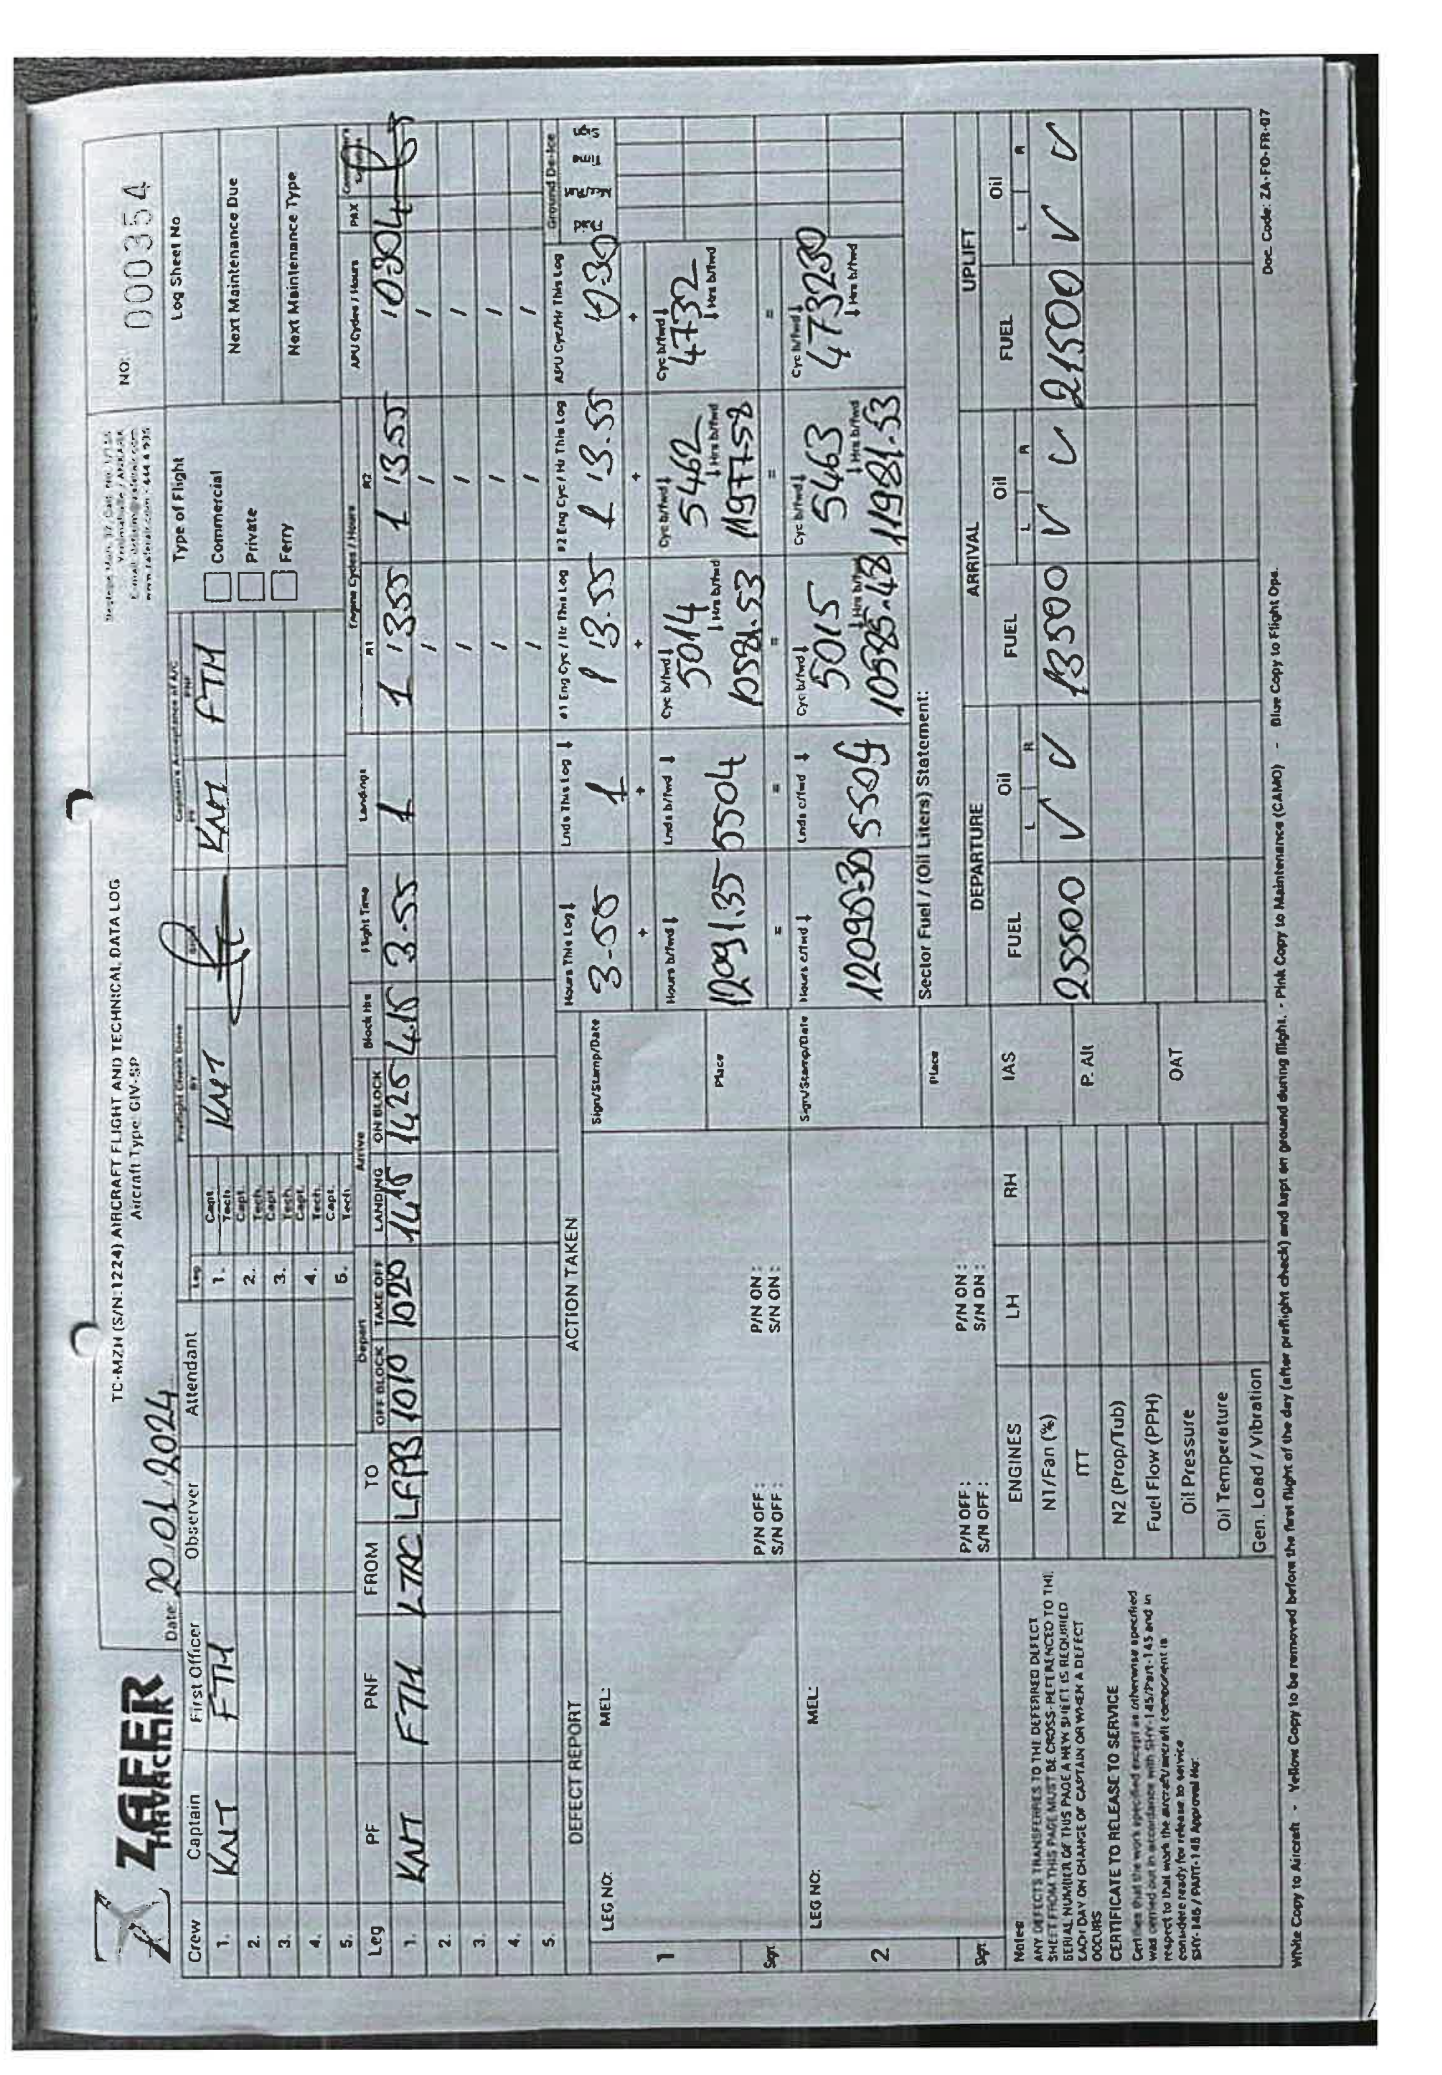 ZAFER
HAVACILIK
TC-MZH (S/N:1224) AIRCRAFT FLIGHT AND TECHNICAL DATA LOG
Aircraft Type: GIV-SP
NO: 000354
Date: 20.01.2024
Crew Captain First Officer Observer Attendant
1. KNT FTH
2.
3.
4.
5.
Leg Preflight Check Done
BY Sign
Captain's Acceptance of A/C
PF PNF
1. Capt. Tech. KNT KNT FTH
2. Capt. Tech.
3. Capt. Tech.
4. Capt. Tech.
5. Capt. Tech.
Type of Flight
Commercial
Private
Ferry
Log Sheet No
Next Maintenance Due
Next Maintenance Type
Leg PF PNF FROM TO Depart Arrive Block Hrs Flight Time Landings Engine Cycles / Hours APU Cycles / Hours PAX
OFF BLOCK TAKE OFF LANDING ON BLOCK #1 #2
1. KNT FTH LTAC LFPB 1010 1020 1415 1425 4.15 3-55 1 1 / 3.55 1 / 3.55 / 0-30 4
2. / / /
3. / / /
4. / / /
5. / / /
DEFECT REPORT ACTION TAKEN
Hours This Log ↓ Lnds This Log ↓ #1 Eng Cyc / Hr This Log #2 Eng Cyc / Hr This Log APU Cyc/Hr This Log Ground De-Ice
3-55 1 1 / 3-55 1 / 3-55 0-30
+ + + + +
1 LEG NO: MEL: Sign/Stamp/Date Place
Hours b/fwd ↓ Lnds b/fwd ↓ Cyc b/fwd ↓ Cyc b/fwd ↓ Cyc b/fwd ↓
5014 5462 4732
↓ Hrs b/fwd ↓ Hrs b/fwd ↓ Hrs b/fwd
12091.35 5504 10581.53 11977-58
= = = = =
Sign P/N OFF : P/N ON :
S/N OFF : S/N ON :
2 LEG NO: MEL: Sign/Stamp/Date Place
Hours c/fwd ↓ Lnds c/fwd ↓ Cyc b/fwd ↓ Cyc b/fwd ↓ Cyc b/fwd ↓
5015 5463 473230
↓ Hrs b/fwd ↓ Hrs b/fwd ↓ Hrs b/fwd
12095-30 5504 10585-48 11981.53
Sign P/N OFF : P/N ON :
S/N OFF : S/N ON :
Sector Fuel / (Oil Liters) Statement:
DEPARTURE ARRIVAL UPLIFT
FUEL Oil FUEL Oil FUEL Oil
L R L R L R
25500 ✓ ✓ 13500 ✓ ✓ 21500 ✓ ✓
Notes
ANY DEFECTS TRANSFERRES TO THE DEFERRED DEFECT
SHEET FROM THIS PAGE MUST BE CROSS-REFERENCED TO THE
SERIAL NUMBER OF THIS PAGE A NEW SHEET IS REQUIRED
EACH DAY ON CHANGE OF CAPTAIN OR WHEN A DEFECT
OCCURS
CERTIFICATE TO RELEASE TO SERVICE
Certifies that the work specified except as otherwise specified
was carried out in accordance with SHY-145/Part-145 and in
respect to that work the aircraft/aircraft component is
considere ready for release to service
SHY-145 / PART-145 Approval No:
ENGINES LH RH IAS
N1/Fan (%)
ITT P. Alt
N2 (Prop/Tub)
Fuel Flow (PPH)
Oil Pressure OAT
Oil Temperature
Gen. Load / Vibration
White Copy to Aircraft - Yellow Copy to be removed before the first flight of the day (after preflight check) and kept on ground during flight. - Pink Copy to Maintenance (CAMO) - Blue Copy to Flight Ops.
Doc. Code: ZA-FO-FR-07